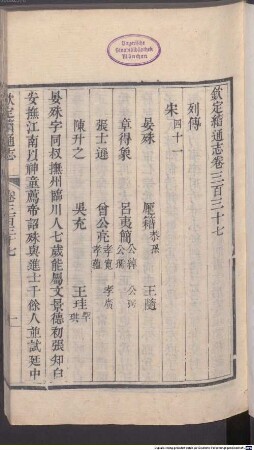 欽定續通志卷三百三十七
列傳
宋四十一
晏殊
龐籍恭孫
王隨
章得象
呂夷簡公綽 公弼 公孺
張士遜
曾公亮孝寬 孝廣 孝蘊
陳升之
吳充
王珪罕 琪
晏殊字同叔撫州臨川人七歲能屬文景德初張知白
安撫江南以神童薦帝詔殊與進士千餘人並試廷中
欽定續通志
卷三百三十七
一
Bayerische
Staatsbibliothek
München